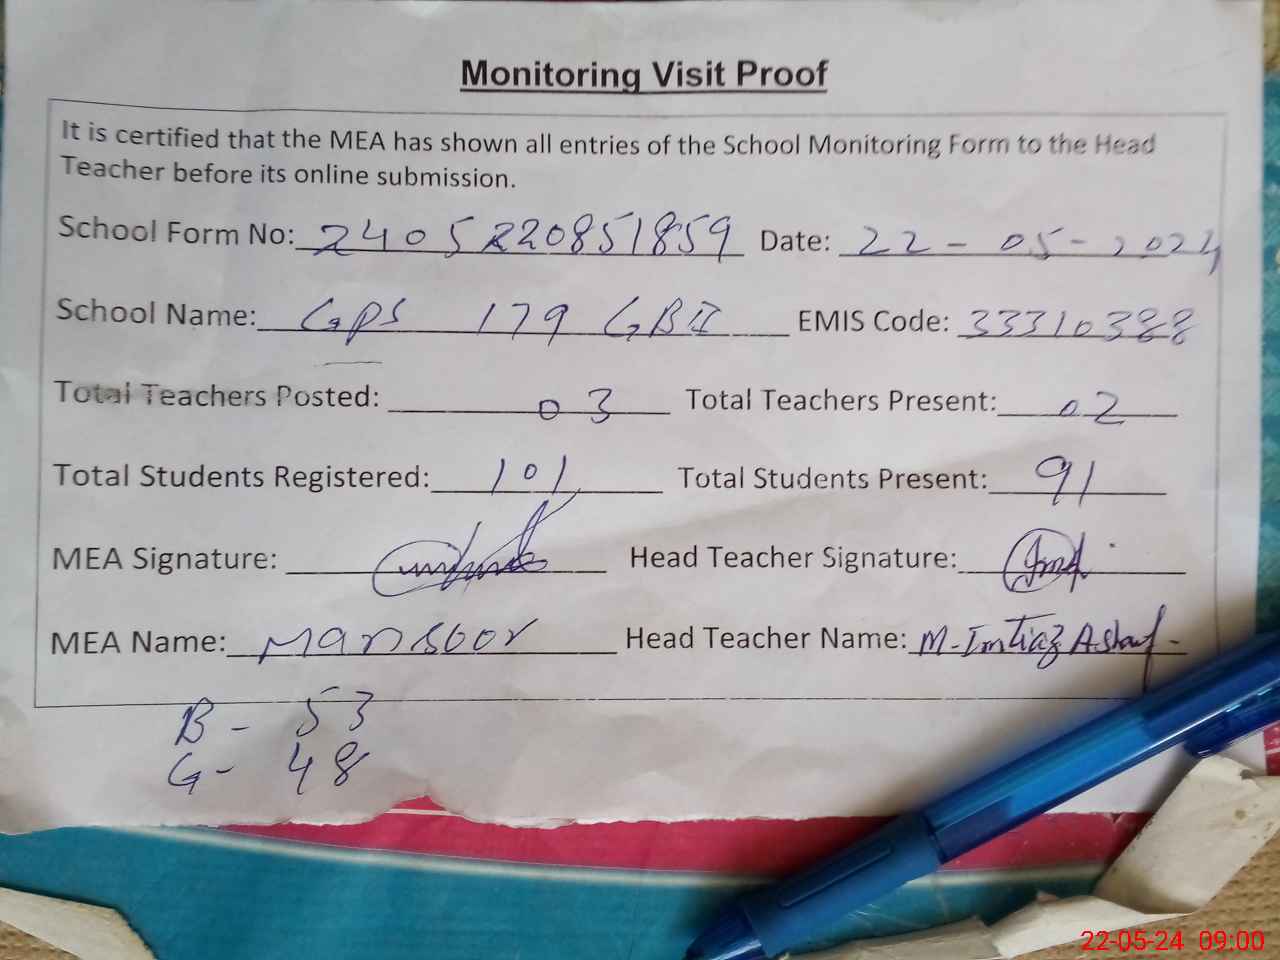 Monitoring Visit Proof
It is certified that the MEA has shown all entries of the School Monitoring Form to the Head
Teacher before its online submission.
School Form No: 2405220851859 Date: 22-05-2024
School Name: GPS 179 GB II EMIS Code: 33310388
Total Teachers Posted: 03 Total Teachers Present: 02
Total Students Registered: 101 Total Students Present: 91
MEA Signature: Head Teacher Signature:
MEA Name: Mansoor Head Teacher Name: M. Imtiaz Ashraf
B - 53
G - 48
22-05-24 09:00